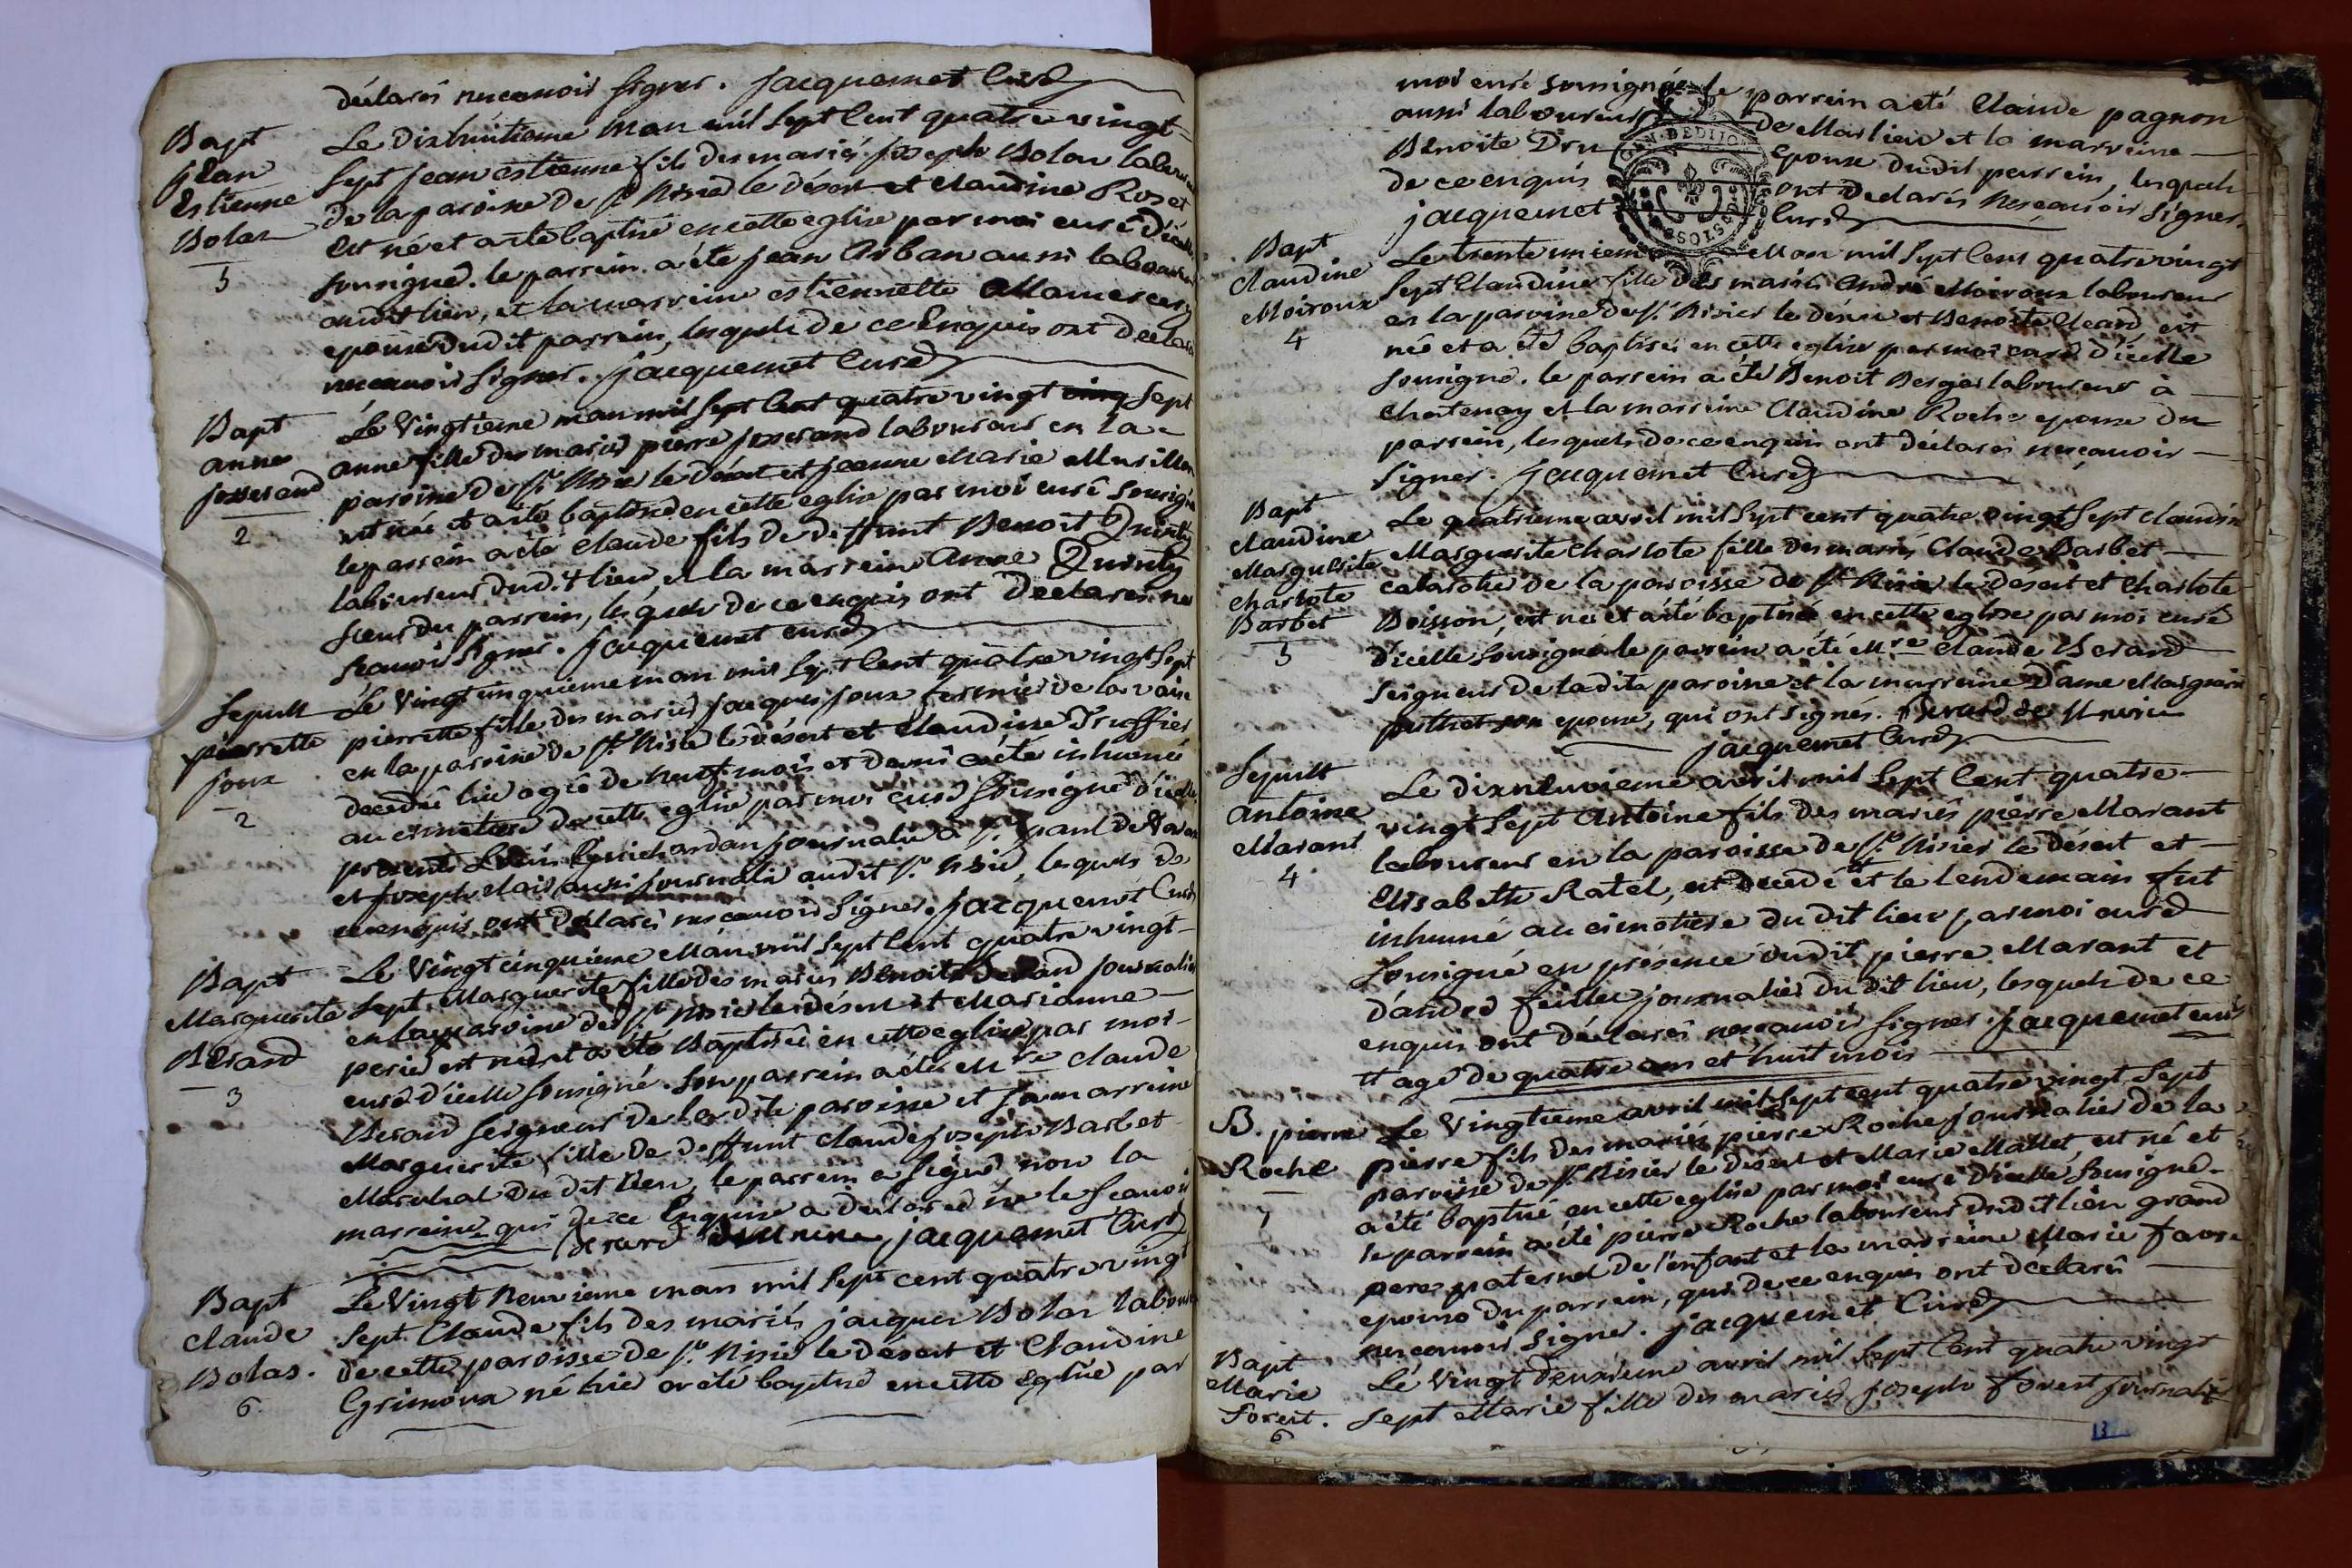 déclarés ne scavoir signer. jacquemet Curé
Bapt
jean
Estienne
Bolas
5
Le dixhuitieme mars mil sept Cent quatre vingt
sept jean estienne fils des mariés joseph Bolas labou
de la paroisse de St Nisié le désert et claudine Roset
est né et a été baptisé en cette eglise par moi curé d'icelle
sousigné. le parrein a été jean Arban aussi laboureur
audit lieu, et la marreine estiennette
epouse dudit parrein, lesquels de ce Enquis ont declarés
ne scavoir signer. jacquemet Curé
Bapt
anne
josserand
2
Le Vingtieme mars mil sept Cent quatre vingt cinq sept
anne fille des mariés pierre josserand laboureur en la
paroisse de St Nisié le désert et jeanne Marie Murillon
est née et a été baptisée en cette eglise par moi curé sousigné
le parrein a été Claude fils de deffunt Benoit Quinty
laboureur dudit lieu, et la marreine Anne Quinty
soeur du parrein, lesquels de ce enquis ont Declarés ne
scavoir signer. jacquemet curé
Sepult
pierrette
joux
2
Le Vingt cinquieme mars mil sept Cent quatre vingt sept
pierrette fille des mariés jacques joux fermier de la
en la paroisse de St Nisié le désert et Claudine Truffier
decedée hier agée de neuf mois et demi a été inhumée
au cimetiere de cette eglise par moi curé sousigné d'icelle
presents Louis Guichardan journalié à St paul de Varax
et joseph clair aussi journalié audit St Nisié, lesquels de
ce enquis ont déclarés ne scavoir signer. jacquemet Curé
Bapt
Marguerite
Berard
3
Le Vingt cinquieme Mars mil sept Cent quatre vingt
sept Marguerite fille des mariés Benoit Berard journalier
en la paroisse de St Nisié le désert et Marianne
perier est née et a été Baptisée en cette eglise par moi
curé d'icelle sousigné. son parrein a été Mre claude
Berard seigneur de ladite paroisse et sa marreine
Marguerite fille de deffunt claude joseph Barbet
Marechal dudit lieu, le parrein a signé non la
marreine qui de ce Enquise a declaré ne le scavoir
Berard de St nisié jacquemet Curé
Bapt
Claude
Bolas.
6
Le Vingt Neuvieme mars mil sept cent quatre vingt
sept Claude fils des mariés jacques Bolas labour
de cette paroisse de St Nisié le désert et Claudine
Grimoux né hier a été baptisé en cette Eglise par
moi curé sousigné le parrein a été Claude pagnon
aussi laboureur de Marlieu et la marreine
Benoite Dru epouse dudit parrein, lesquels
de ce enquis ont declarés ne scavoir signer.
jacquemet Curé
GEN. DE DIJON
Bapt
Claudine
Moiroux
4
Le trente unieme Mars mil sept Cent quatre vingt
sept Claudine fille des mariés André Moiroux laboureur
en la paroisse de St Nisier le désert et Benoite Cleard est
née et a été baptisée en cette eglise par moi curé d'icelle
sousigné. le parrein a été Benoit Berger laboureur à
Chastenay et la marreine Claudine Roche epouse du
parrein, lesquels de ce enquis ont declarés ne scavoir
signer. jacquemet Curé
Bapt
Claudine
Marguerite
Charlote
Barbet
5
Le quatrieme avril mil sept cent quatre vingt sept claudine
Marguerite Charlote fille des mariés Claude Barbet
cabarotier de la paroisse de St Nisié le desert et Charlote
Boisson, est née et a été baptisée en cette eglise par moi curé
d'icelle sousigné le parrein a été Mre Claude Berard
seigneur de ladite paroisse et la marreine Dame Marguerite
son epouse, qui ont signés. Berard de St nisié
jacquemet Curé
Sepult
Antoine
Marant
4
Le dixneuvieme avril mil sept Cent quatre
vingt sept Antoine fils des mariés pierre Marant
laboureur en la paroisse de St Nisier le désert et
Elisabette Ratel, est decedé et le lendemain fut
inhumé au cimetiere dudit lieu par moi curé
sousigné en présence dudit pierre Marant et
d'andré feuillet journalier dudit lieu, lesquels de ce
enquis ont déclarés ne scavoir signer. jacquemet curé
et agé de quatre ans et huit mois
B. pierre
Roche
7
Le Vingtieme avril mil sept cent quatre vingt sept
pierre fils des mariés pierre Roche journalier de la
paroisse de St Nisier le desert et Marie Mallet, est né et
a été baptisé en cette eglise par moi curé d'icelle sousigné
le parrein a été pierre Roche laboureur dudit lieu grand
pere paternel de l'enfant et la marreine Marie favre
epouse du parrein, qui de ce enquis ont declarés
ne scavoir signer. jacquemet Curé
Bapt
Marie
forest.
6
Le Vingt deuxieme avril mil sept Cent quatre vingt
sept Marie fille des mariés joseph forest journalié
13